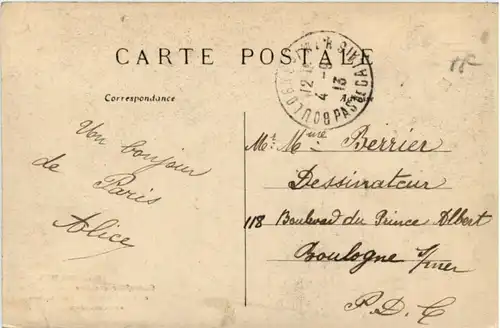 CARTE POSTALE
Correspondance
Adresse
BOULOGNE S MER PAS DE CALAIS
12
4 - 9
13
Un bonjour
de Paris
Alice
Mr. Mme Berrier
Dessinateur
118 Boulevard du Prince Albert
Boulogne s/mer
P. D. C